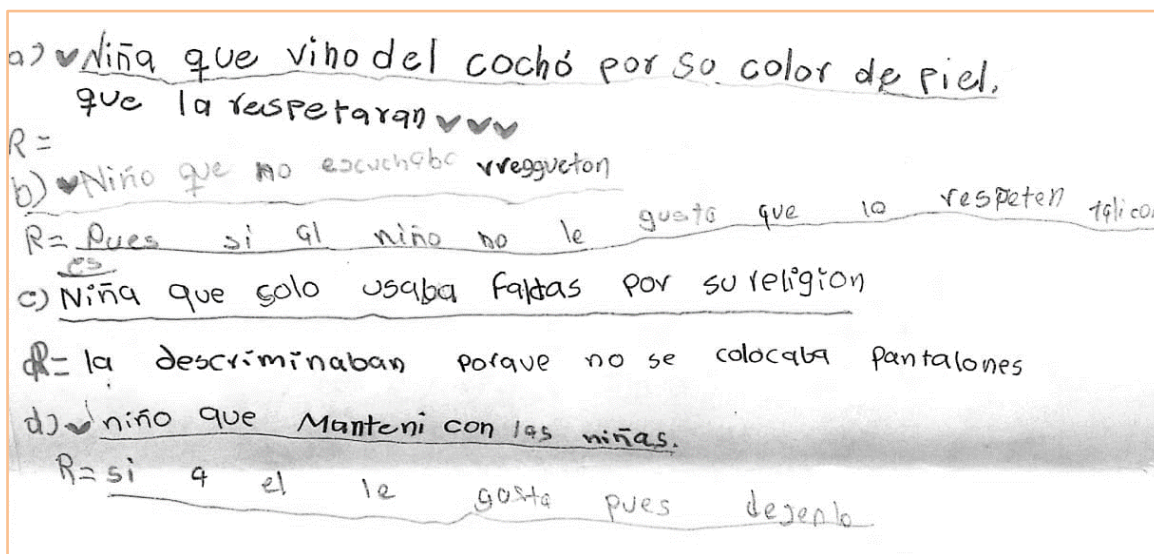 a) Niña que vino del cochó por su color de piel.
que la respetaran
R=
b) Niño que no escuchaba vreggueton
R= Pues si al niño no le gusta que lo respeten
es
c) Niña que solo usaba faldas por su religion
R= la descriminaban porque no se colocaba pantalones
d) niño que Manteni con las niñas.
R= si a el le gosta pues dejenlo